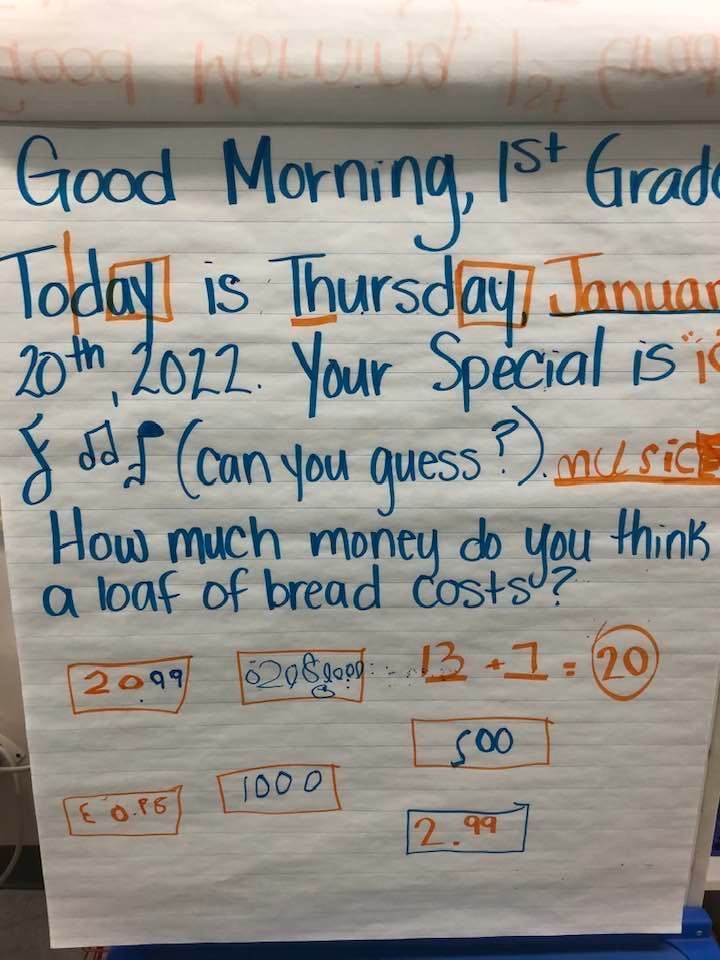 Good Morning, 1st Grade
Today is Thursday, Januar
20th, 2022. Your Special is
(can you guess?). music
How much money do you think
a loaf of bread costs?
20.99 13 + 7 = 20
500
1000
2.99